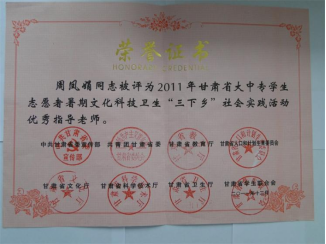 荣誉证书
HONORARY CREDENTIAL
周凤娟同志被评为2011年甘肃省大中专学生
志愿者暑期文化科技卫生“三下乡”社会实践活动
优秀指导老师。
中共甘肃省委宣传部 共青团甘肃省委 甘肃省教育厅
甘肃省文化厅 甘肃省科学技术厅 甘肃省卫生厅 甘肃省学生联合会